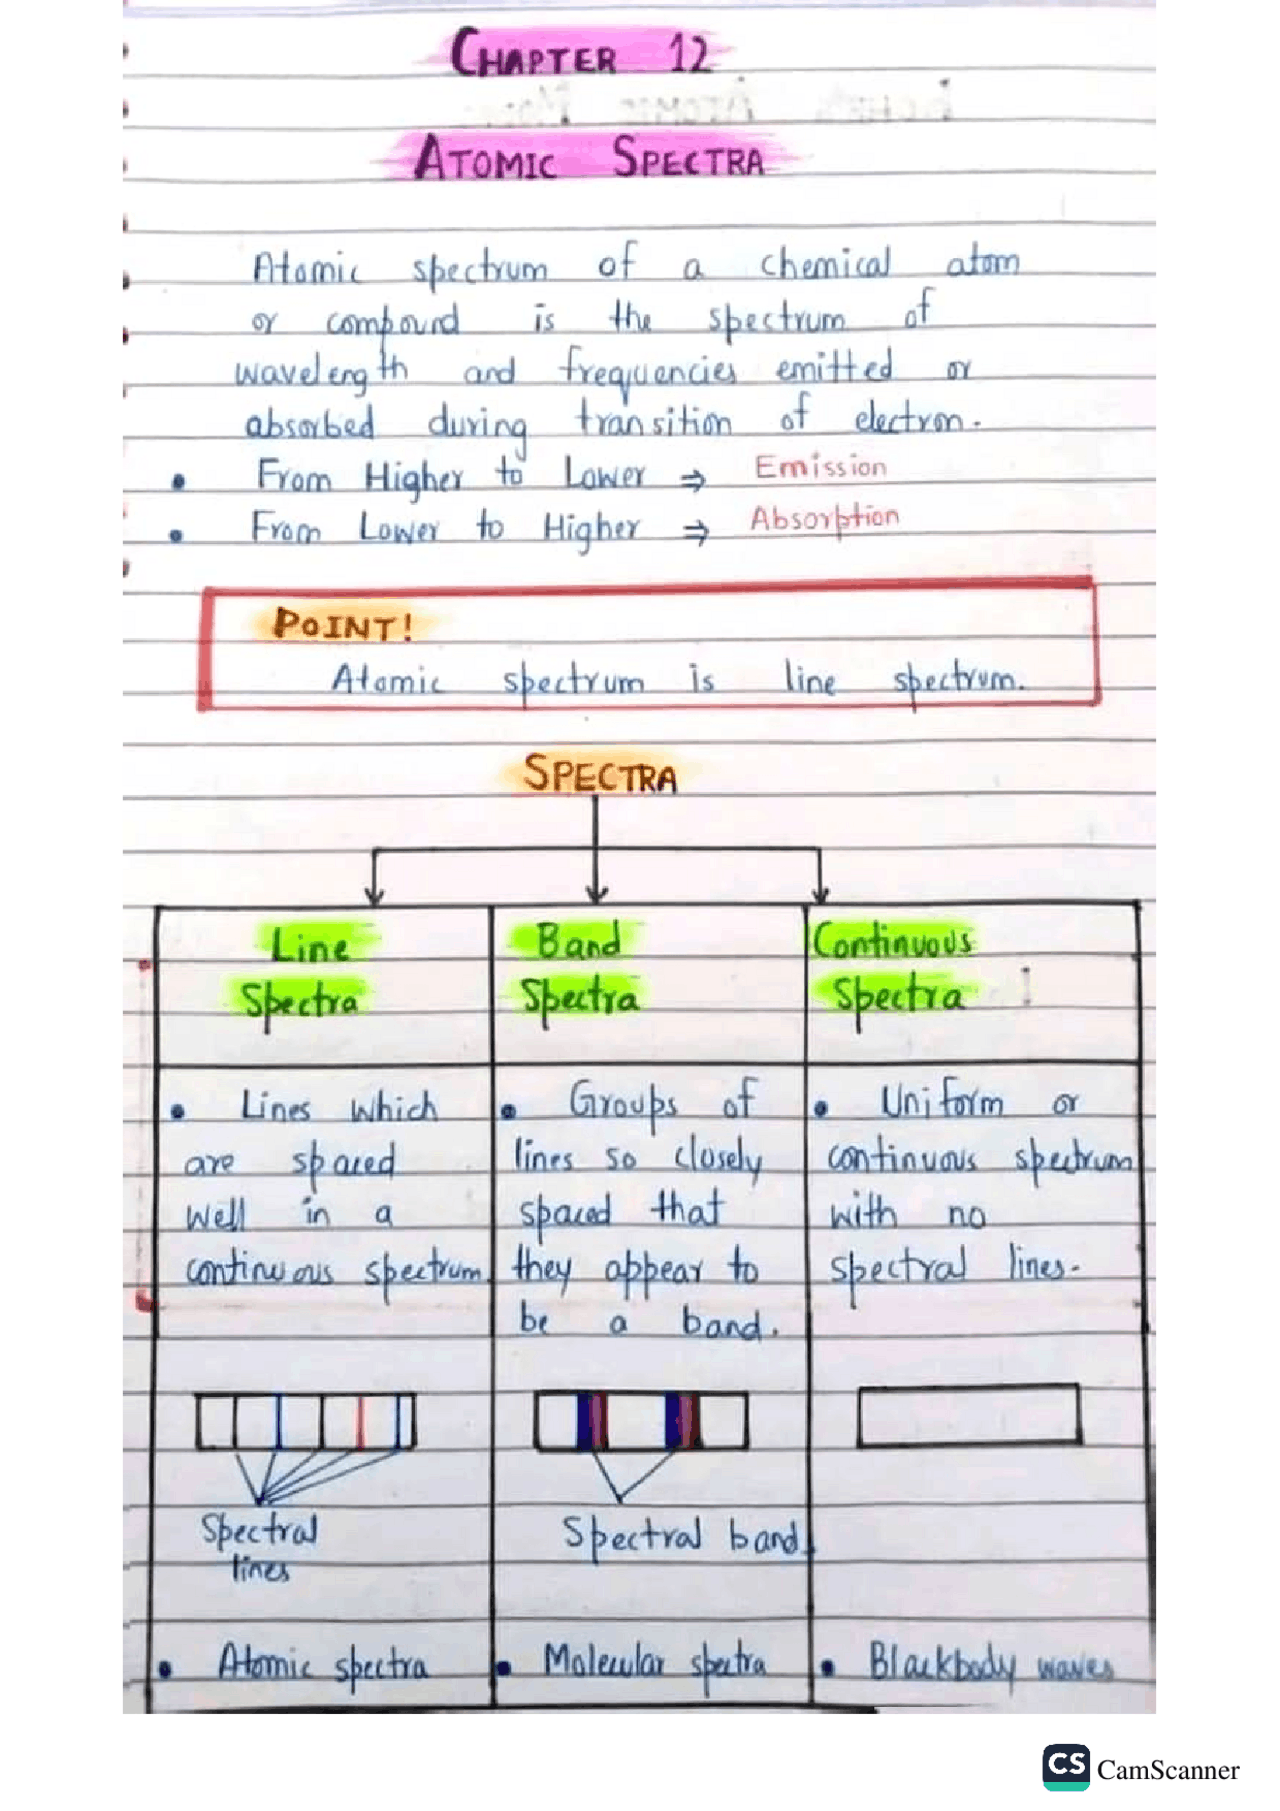 CHAPTER 12
ATOMIC SPECTRA
Atomic spectrum of a chemical atom
or compound is the spectrum of
wavelength and frequencies emitted or
absorbed during transition of electron.
• From Higher to Lower ⇒ Emission
• From Lower to Higher ⇒ Absorption
POINT!
Atomic spectrum is line spectrum.
SPECTRA
Line
Spectra
• Lines which
are spaced
well in a
continuous spectrum.
Spectral
lines
• Atomic spectra
Band
Spectra
• Groups of
lines so closely
spaced that
they appear to
be a band.
Spectral band
• Molecular spectra
Continuous
Spectra
• Uniform or
continuous spectrum
with no
spectral lines.
• Blackbody waves
CS CamScanner